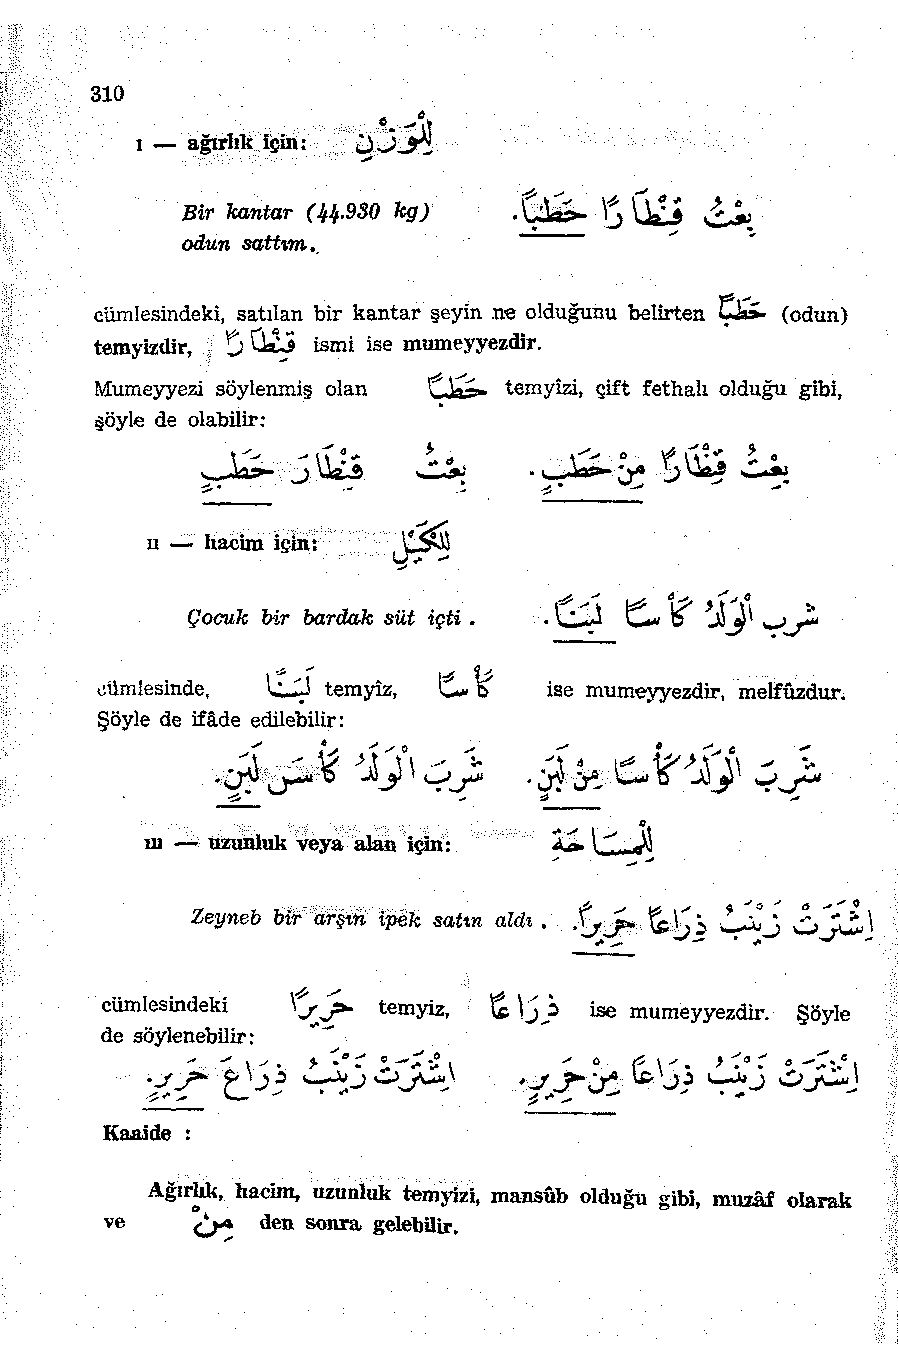 310
ı — ağırlık için: لِلْوَزْنِ
Bir kantar (44.930 kg) بِعْتُ قِنْطَارًا حَطَبًا.
odun sattım.
cümlesindeki, satılan bir kantar şeyin ne olduğunu belirten حَطَبًا (odun)
temyizdir, قِنْطَارًا ismi ise mumeyyezdir.
Mumeyyezi söylenmiş olan حَطَبًا temyîzi, çift fethalı olduğu gibi,
şöyle de olabilir:
بِعْتُ قِنْطَارًا مِنْ حَطَبٍ. بِعْتُ قِنْطَارَ حَطَبٍ
ıı — hacim için: لِلْكَيْلِ
Çocuk bir bardak süt içti. شرب الْوَلَدُ كَأْسًا لَبَنًا.
cümlesinde, لَبَنًا temyîz, كَأْسًا ise mumeyyezdir, melfûzdur.
Şöyle de ifâde edilebilir:
شَرِبَ الْوَلَدُ كَأْسًا مِنْ لَبَنٍ. شَرِبَ الْوَلَدُ كَأْسَ لَبَنٍ.
ııı — uzunluk veya alan için: لِلْمِسَاحَةِ
Zeyneb bir arşın ipek satın aldı. اِشْتَرَتْ زَيْنَبُ ذِرَاعًا حَرِيرًا.
cümlesindeki حَرِيرًا temyiz, ذِرَاعًا ise mumeyyezdir. Şöyle
de söylenebilir:
اِشْتَرَتْ زَيْنَبُ ذِرَاعًا مِنْ حَرِيرٍ. اِشْتَرَتْ زَيْنَبُ ذِرَاعَ حَرِيرٍ.
Kaaide :
Ağırlık, hacim, uzunluk temyizi, mansûb olduğu gibi, muzâf olarak
ve مِنْ den sonra gelebilir.